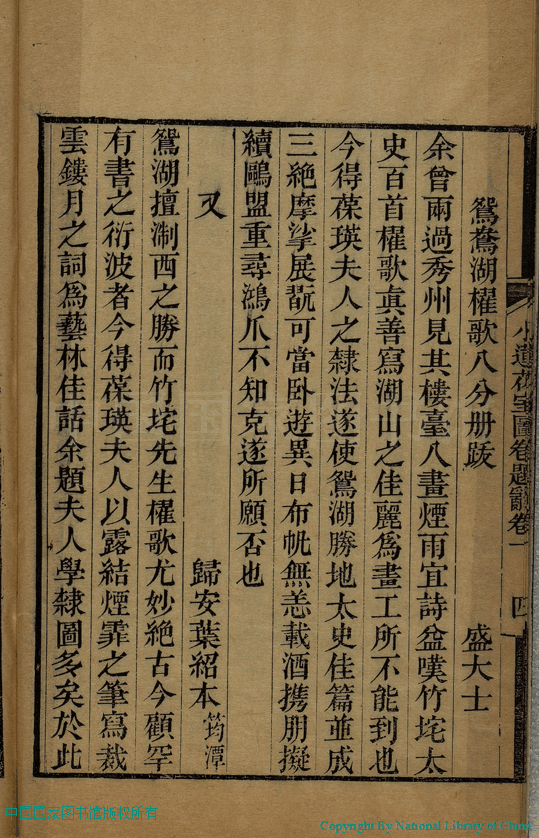 鴛鴦湖櫂歌八分册跋　盛大士
余曾兩過秀州見其樓臺入畫煙雨宜詩益嘆竹垞太
史百首櫂歌眞善寫湖山之佳麗爲畫工所不能到也
今得葆瑛夫人之隸法遂使鴛湖勝地太史佳篇並成
三絶摩挲展翫可當卧遊異日布帆無恙載酒携朋擬
續鷗盟重尋鴻爪不知克遂所願否也
又　歸安葉紹本筠潭
鴛湖擅淛西之勝而竹垞先生櫂歌尤妙絶古今顧罕
有書之衍波者今得葆瑛夫人以露結煙霏之筆寫裁
雲鏤月之詞爲藝林佳話余題夫人學隸圖多矣於此
圖卷題辭卷一　四
中国国家图书馆版权所有
Copyright By National Library of China